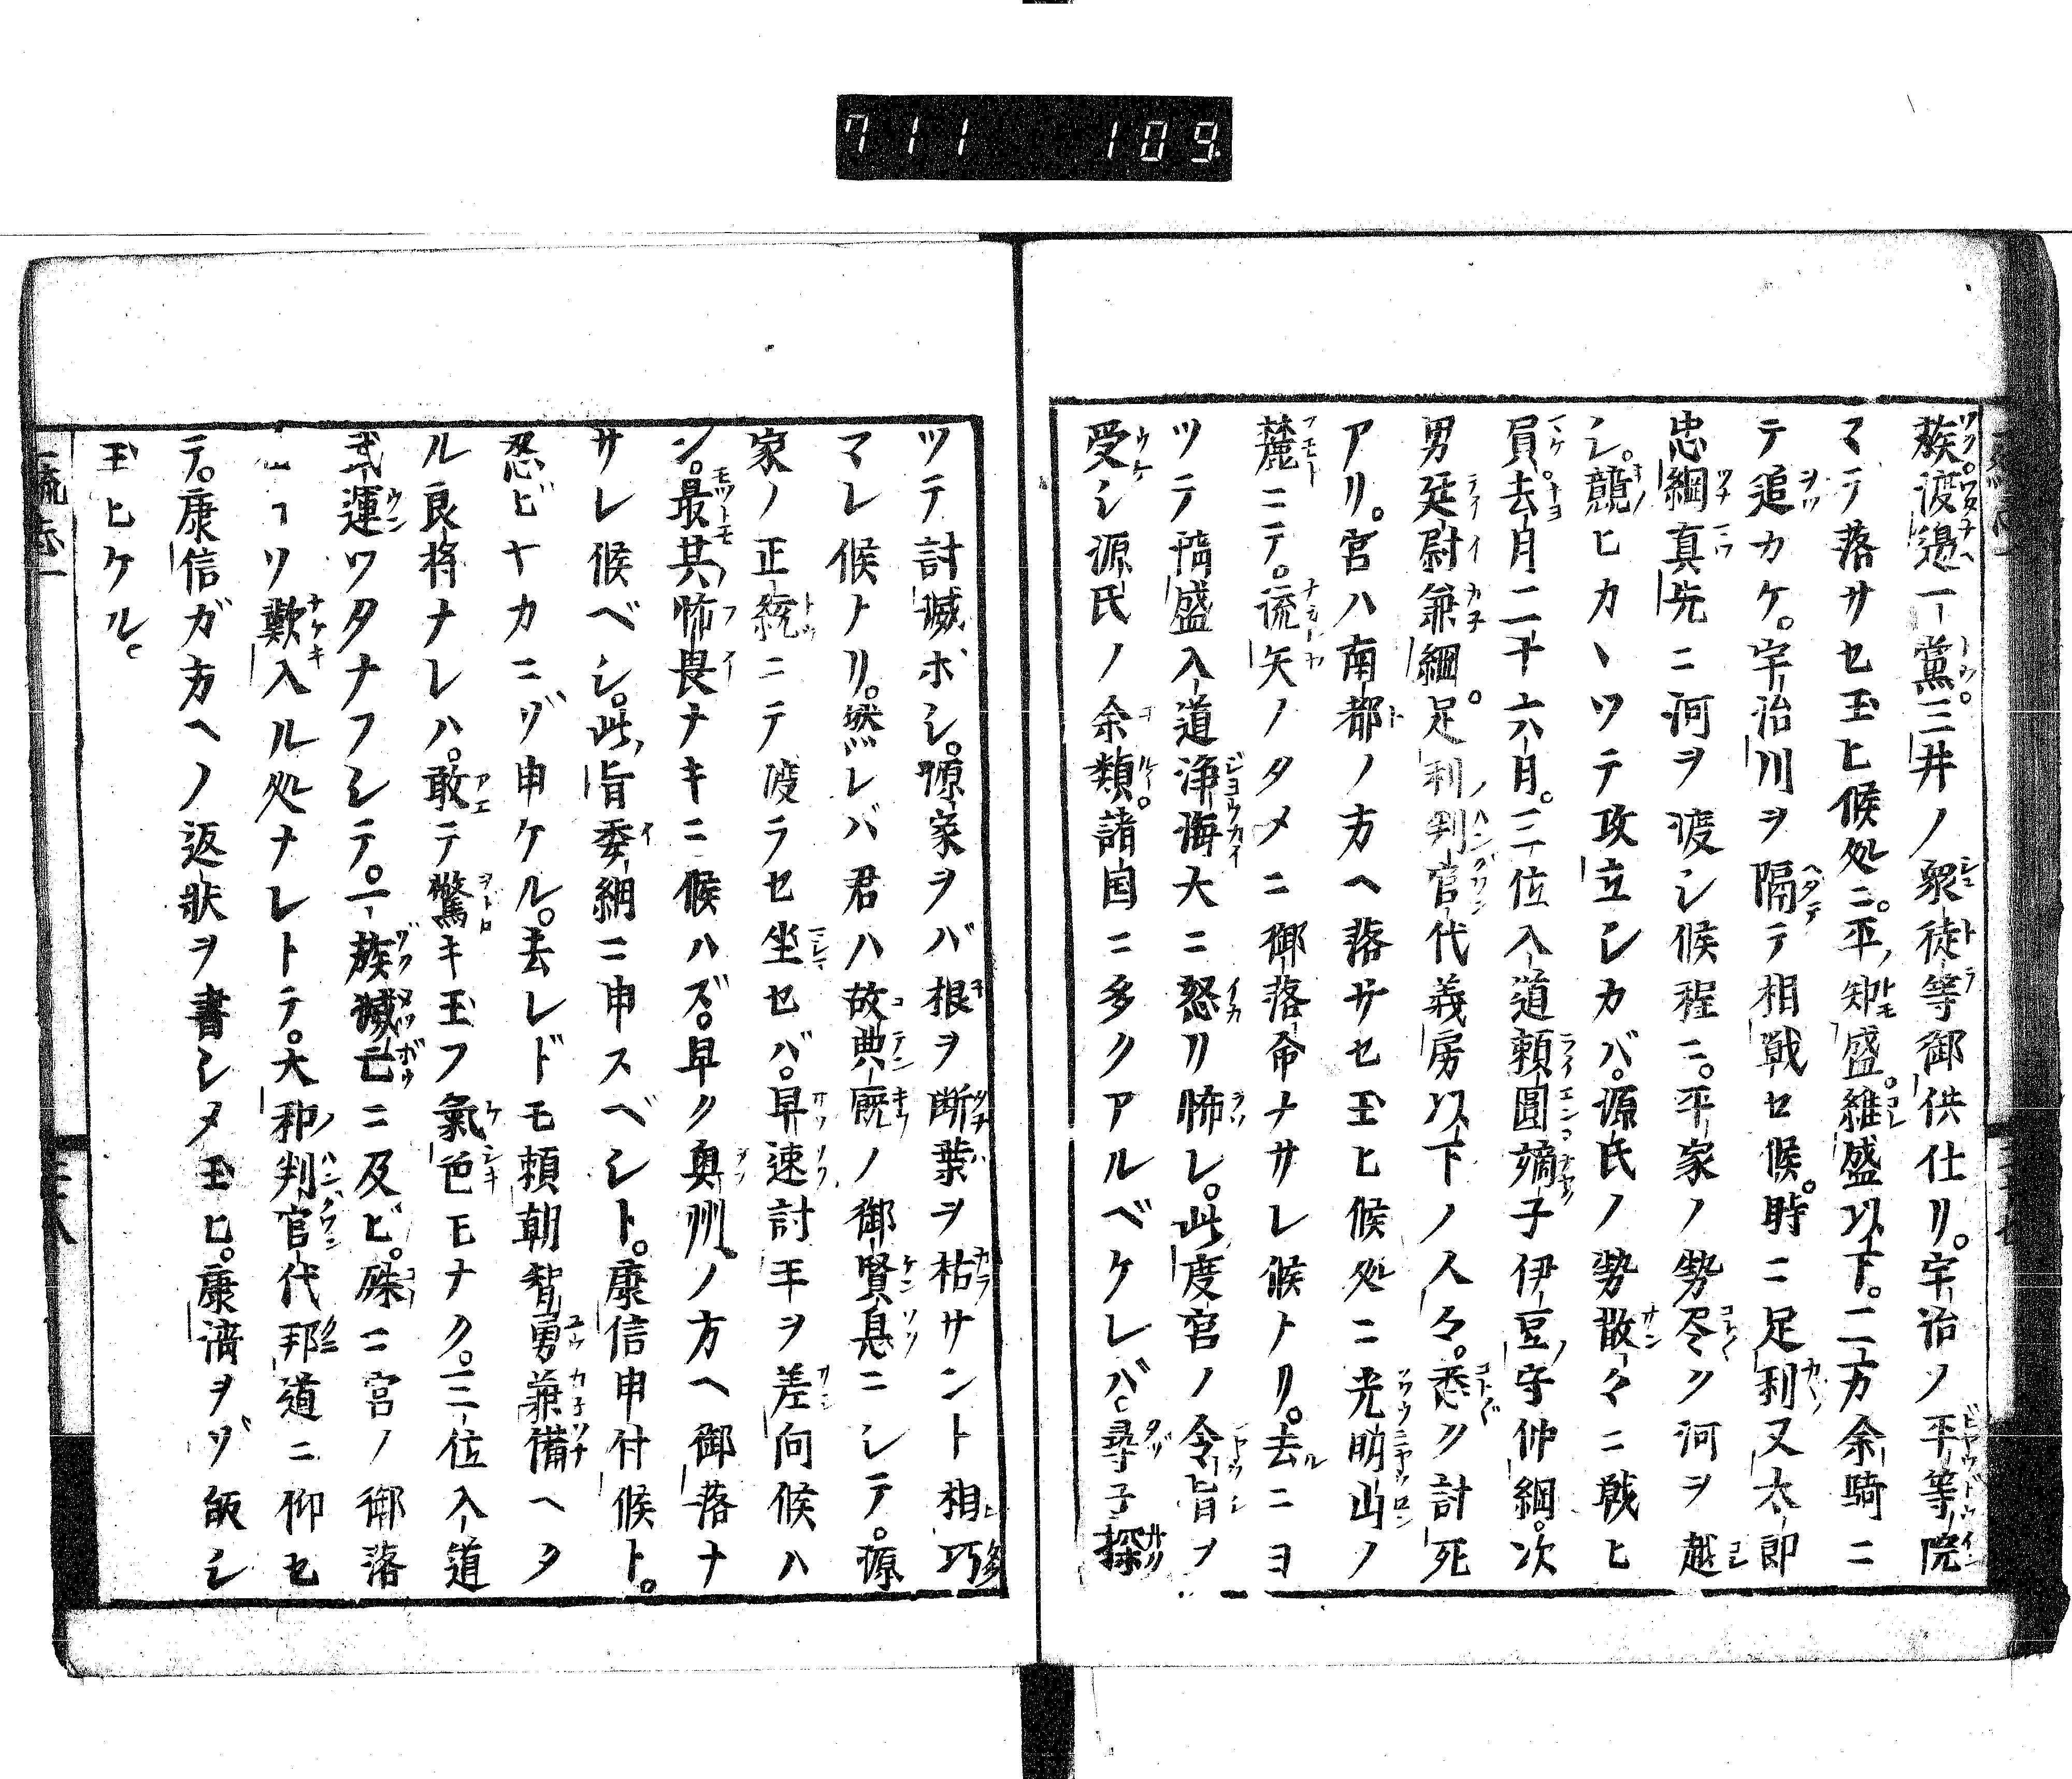 711 109
族。渡邉一黨。三井ノ衆徒等御供仕リ。宇治ノ平等院
マテ落サセ玉ヒ候処ニ。平知盛。維盛以下。二万余騎ニ
テ追カケ。宇治川ヲ隔テ相戦セ候。時ニ足利又太郎
忠綱真先ニ河ヲ渡シ候程ニ。平家ノ勢尽ク河ヲ越
シ。競ヒカヽツテ攻立シカバ。源氏ノ勢散々ニ戦ヒ
負。去月二十六月。三位入道頼圓嫡子伊豆守仲綱。次
男廷尉兼綱。足利判官代義房以下ノ人々。悉ク討死
アリ。宮ハ南都ノ方ヘ落サセ玉ヒ候処ニ光明山ノ
麓ニテ。流矢ノタメニ御落命ナサレ候トリ。去ニヨ
ツテ清盛入道浄海大ニ怒リ怖レ。此度宮ノ令旨ヲ
受シ源氏ノ余類。諸国ニ多クアルベケレバ。尋子探
ツテ討滅ボシ。源家ヲバ根ヲ断葉ヲ枯サント相巧
マレ候トリ。然レバ君ハ故典厩ノ御賢息ニシテ。源
家ノ正統ニテ渡ラセ坐セバ。早速討手ヲ差向候ハ
ン。最其怖畏ナキニ候ハズ。早ク奥州ノ方ヘ御落ナ
サレ候ベシ。此旨委細ニ申スベシト。康信申付候ト。
忍ビヤカニゾ申ケル。去レドモ頼朝智勇兼備ヘタ
ル良将ナレハ。敢テ驚キ玉フ氣色モナク。三位入道
武運ツタナフシテ。一族滅亡ニ及ビ。殊ニ宮ノ御落
リ歎入ル処ナレトテ。大和判官代邦道ニ仰セ
テ。康信ガ方ヘノ返状ヲ書シメ玉ヒ。康清ヲゾ皈シ
玉ヒケル。